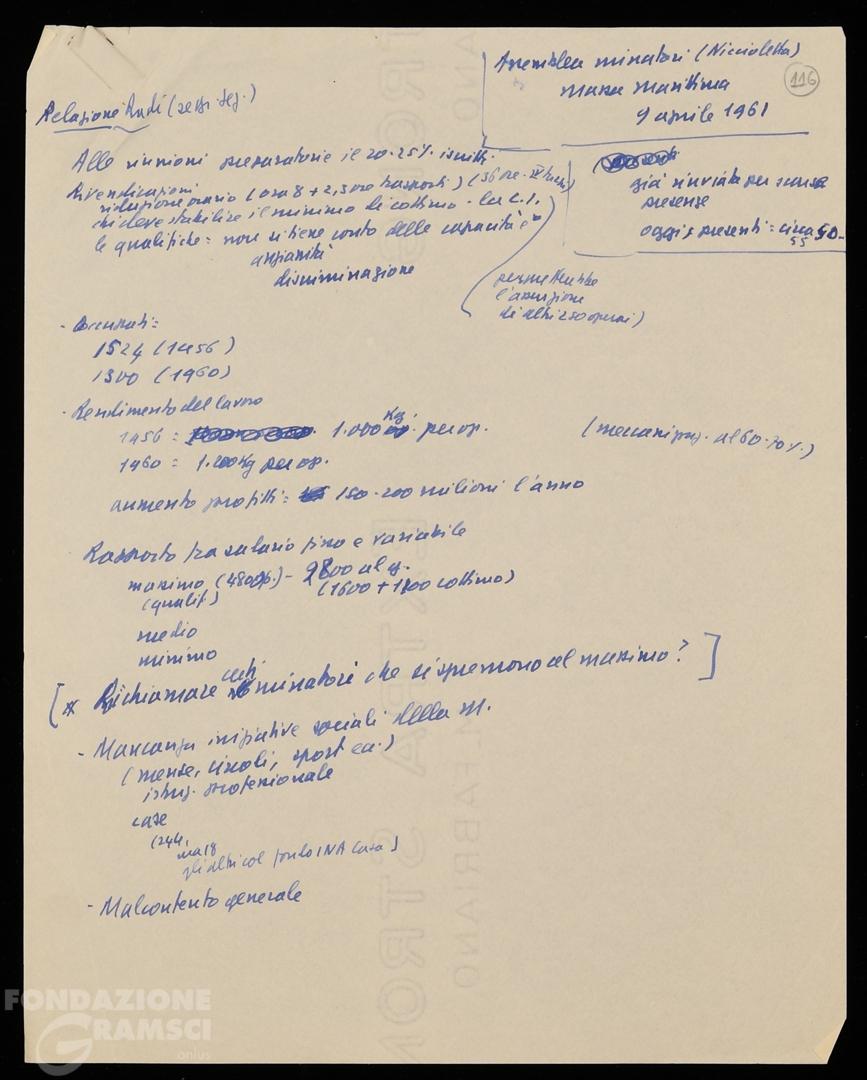 Assemblea minatori (Niccioletta)
Massa Marittima
9 aprile 1961
116
Relazione Rudi (segr. seg.)
già rinviata per scarse
presenze
oggi presenti = circa 50
55
Alle riunioni preparatorie il 20-25% iscritti.
Rivendicazioni
riduzione orario (ora 8 + 2,30 re trasporti) (36 ore
chi deve stabilire il minimo di cottimo - la C.I.
le qualifiche = non si tiene conto delle capacità e
anzianità
discriminazione
permetterebbe
l'assunzione
di altri 250 operai)
- Occupati =
1524 (1956)
1300 (1960)
- Rendimento del lavoro
1956 = 1.000 Kg. per op.
(meccanizzaz. al 60-70%.)
1960 = 1.200 Kg per op.
aumento profitti = 150-200 milioni l'anno
Rapporto tra salario fisso e variabile
massimo (480 op.) - 2800 al g.
(qualif.) (1600 + 1200 cottimo)
medio
minimo
[* Richiamare certi minatori che si spremono al massimo? ]
- Mancanza iniziative sociali della M.
(mense, circoli, sport ecc.)
istruz. professionale
case
(244,
ma 18
gli altri col fondo INA Casa)
- Malcontento generale
FABRIANO
EXTRA STRONG
FONDAZIONE
GRAMSCI
onlus